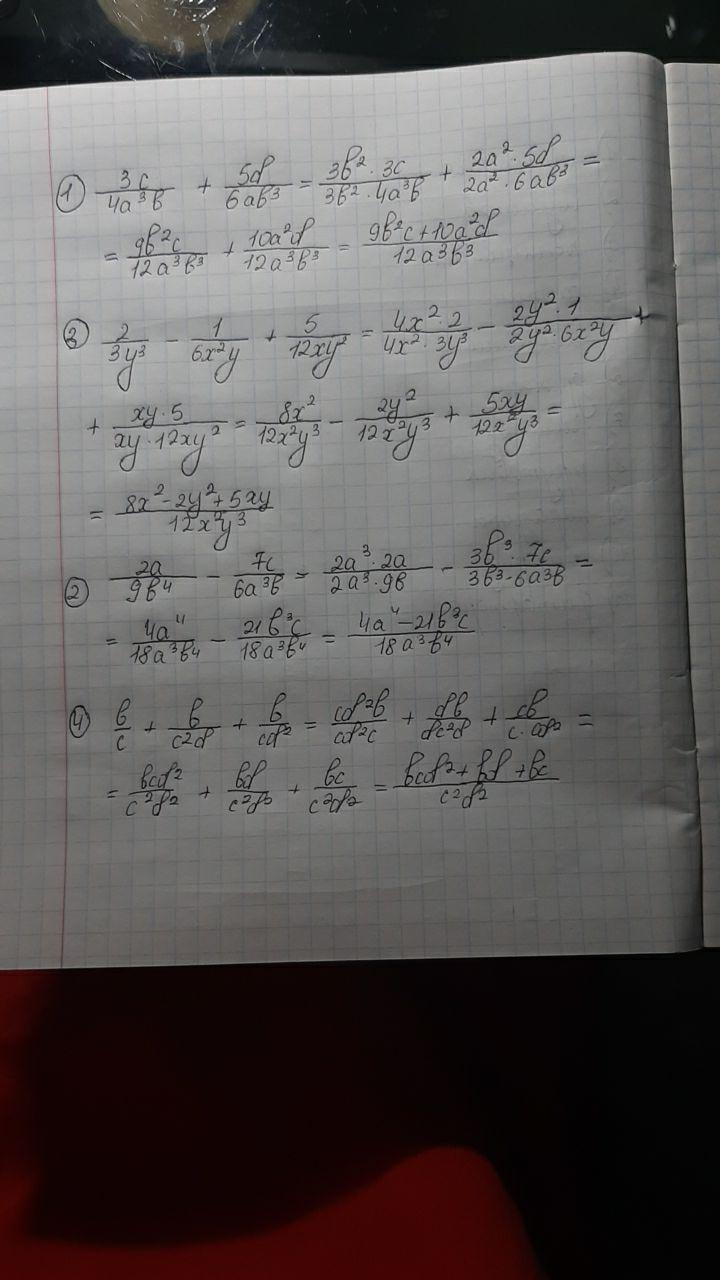 ① 3c/4a³b + 5d/6ab³ = 3b²·3c/3b²·4a³b + 2a²·5d/2a²·6ab³ =
= 9b²c/12a³b³ + 10a²d/12a³b³ = 9b²c+10a²d/12a³b³
③ 2/3y³ - 1/6x²y + 5/12xy² = 4x²·2/4x²·3y³ - 2y²·1/2y²·6x²y +
+ xy·5/xy·12xy² = 8x²/12x²y³ - 2y²/12x²y³ + 5xy/12x²y³ =
= 8x²-2y²+5xy/12x²y³
② 2a/9b⁴ - 7c/6a³b = 2a³·2a/2a³·9b - 3b³·7c/3b³·6a³b =
= 4a⁴/18a³b⁴ - 21b³c/18a³b⁴ = 4a⁴-21b³c/18a³b⁴
④ b/c + b/c²d + b/cd² = cd²b/cd²c + db/dc²d + cb/c·cd² =
= bcd²/c²d² + bd/c²d² + bc/c²d² = bcd²+bd+bc/c²d²